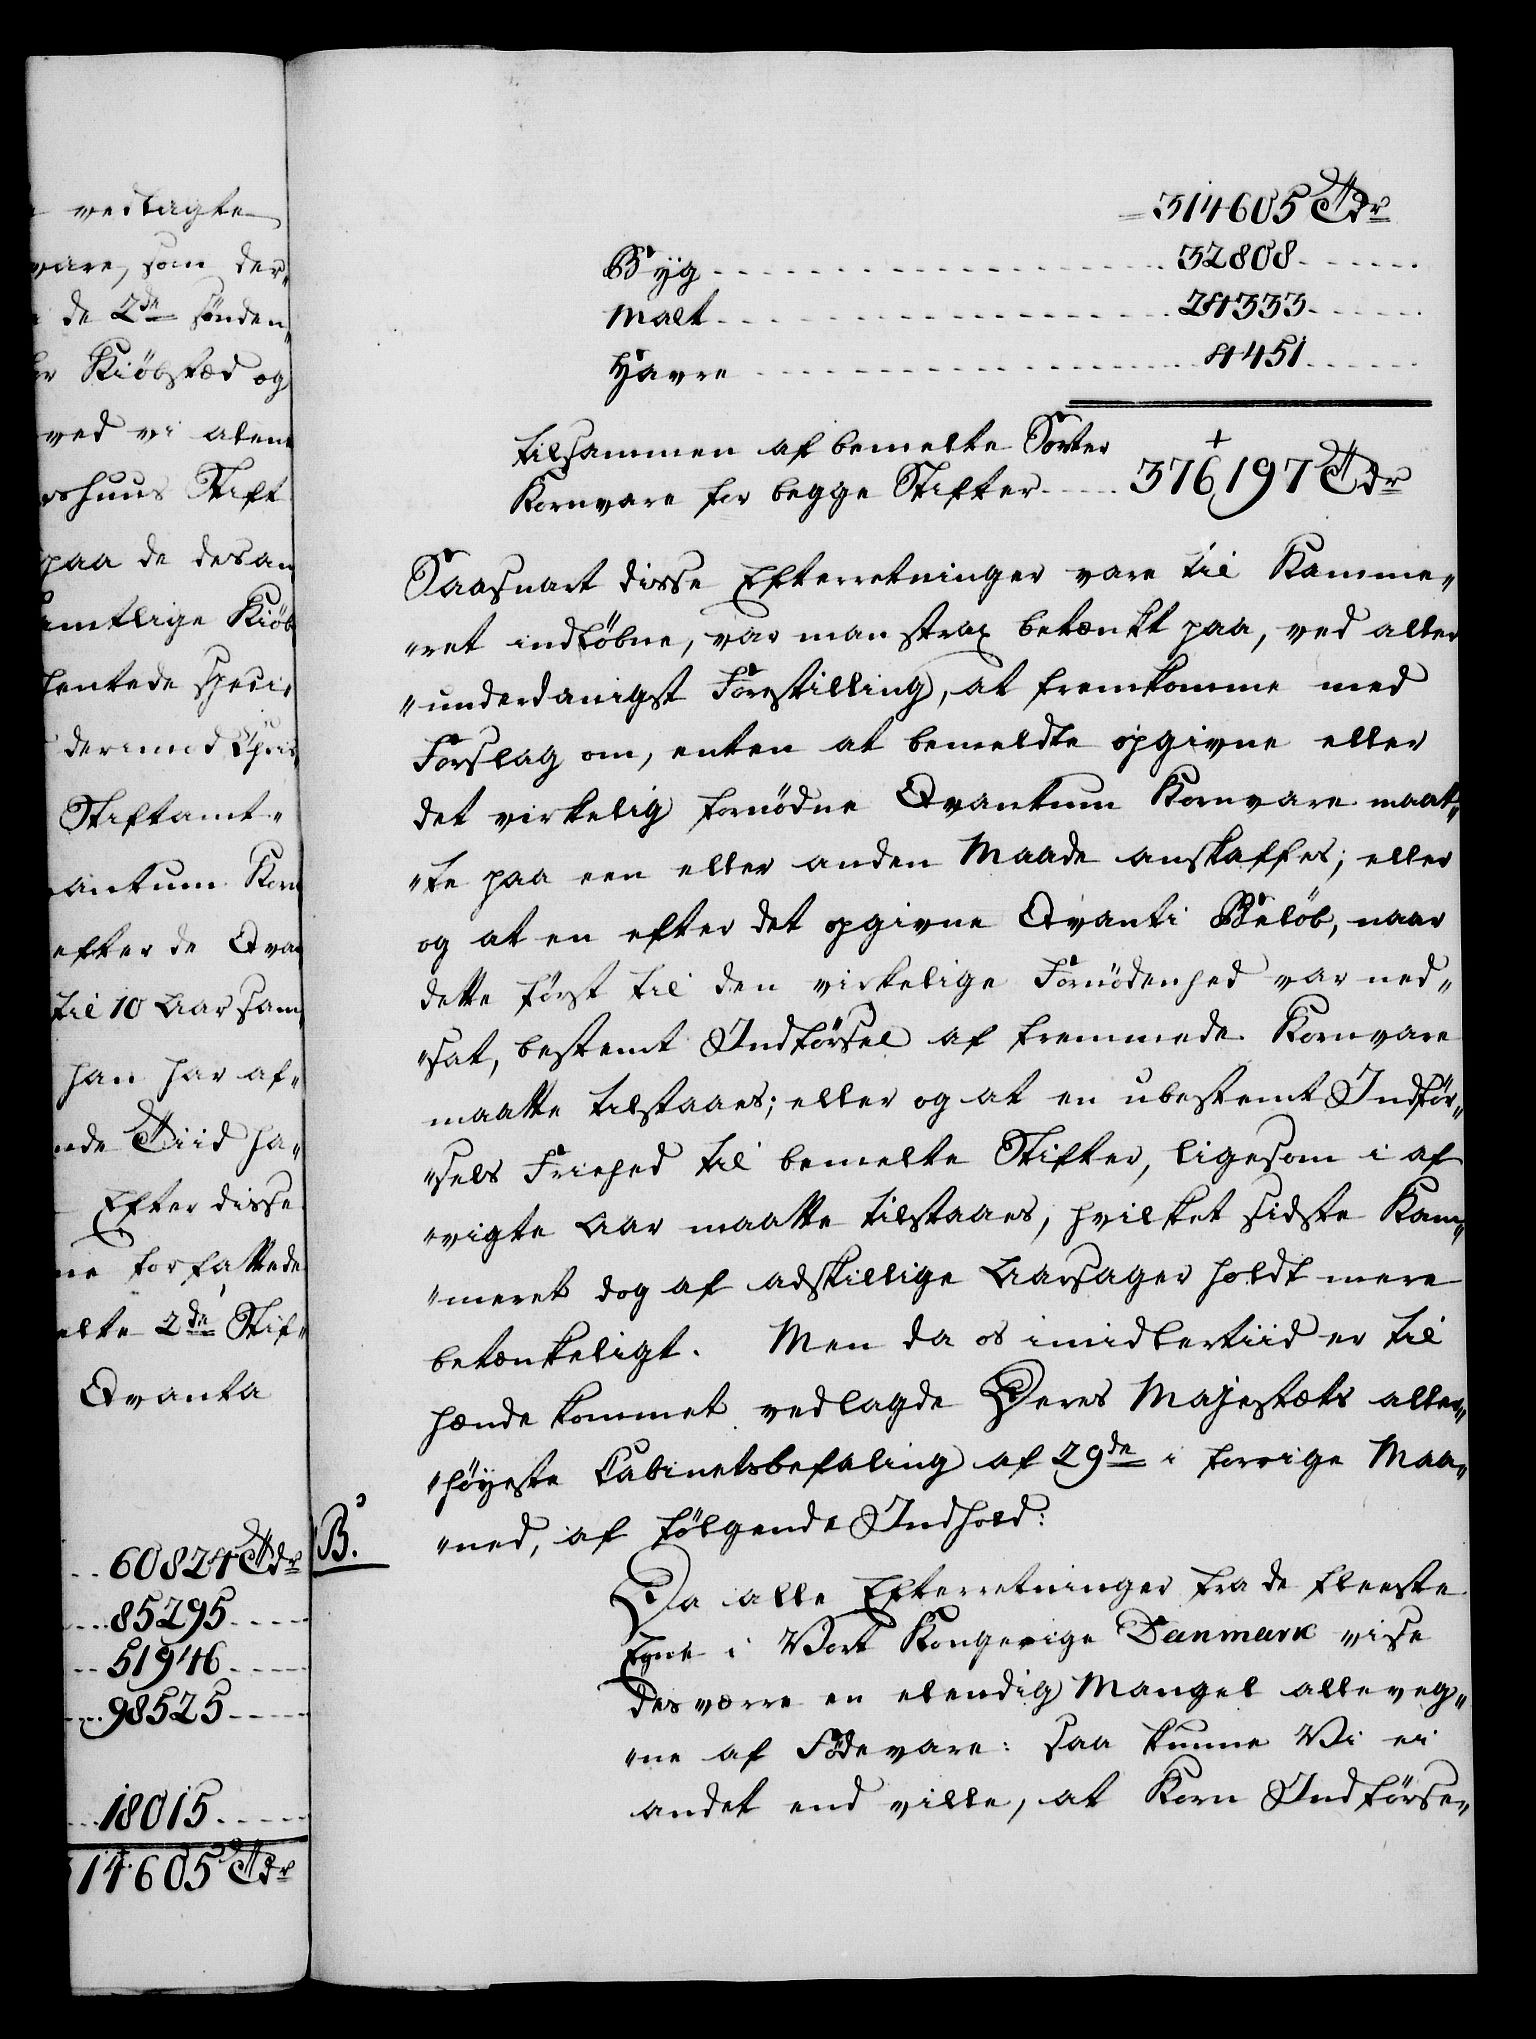 vedtagte
vare, som der„
de 2de sønden„
Kiöbstæd og
ved vi alene
huus Stift
paa de desan
amtlige Kiöb
hentede speci„
derimod
Stiftamt„
antum Korn
efter de Qvan
til 10 Aar sam„
han har af„
nde Tiid ha„
Efter disse
ne forfattede
elte 2de Stif„
Qvanta
60824 Tdr
85295
51946
98525
18015
14605 Tdr
314605 Tdr
Byg 32808
Malt 24333
Havre 4451
tilsammen af bemelte Sorter
Kornvare for begge Stifter 376,197 Tdr
Saasnart disse Efterretninger vare til Kamme„
„ret indlöbne, var man strax betænkt paa, ved aller
„underdanigst Forestilling, at fremkomme med
Forslag om, enten at bemeldte opgivne eller
det virkelig fornödne Qvantum Kornvare maat„
„te paa een eller anden Maade anskaffes; eller
og at en efter det opgivne Qvanti Belöb, naar
dette först til den virkelige Fornödenhed var ned„
„sat, bestemt Indförsel af fremmede Kornvare
maatte tilstaaes; eller og at en ubestemt Indför„
„sels Friehed til bemelte Stifter, ligesom i af
„vigte Aar maatte tilstaaes, hvilket sidste Kam„
„meret dog af adskillige Aarsager holdt mere
betænkeligt. Men da os imidlertiid er til
hænde kommet vedlagde Deres Majestæts aller„
„höyeste Cabinetsbefaling af 29de i forrige Maa„
B. „ned, af fölgende Indhold:
Da alle Efterretninger fra de fleeste
Egne i Vort Kongerige Danmark vise
desværre en elendig Mangel alleveg„
„ne af Födevare: saa kunne Vi ei
andet end ville, at Korn Indförse„